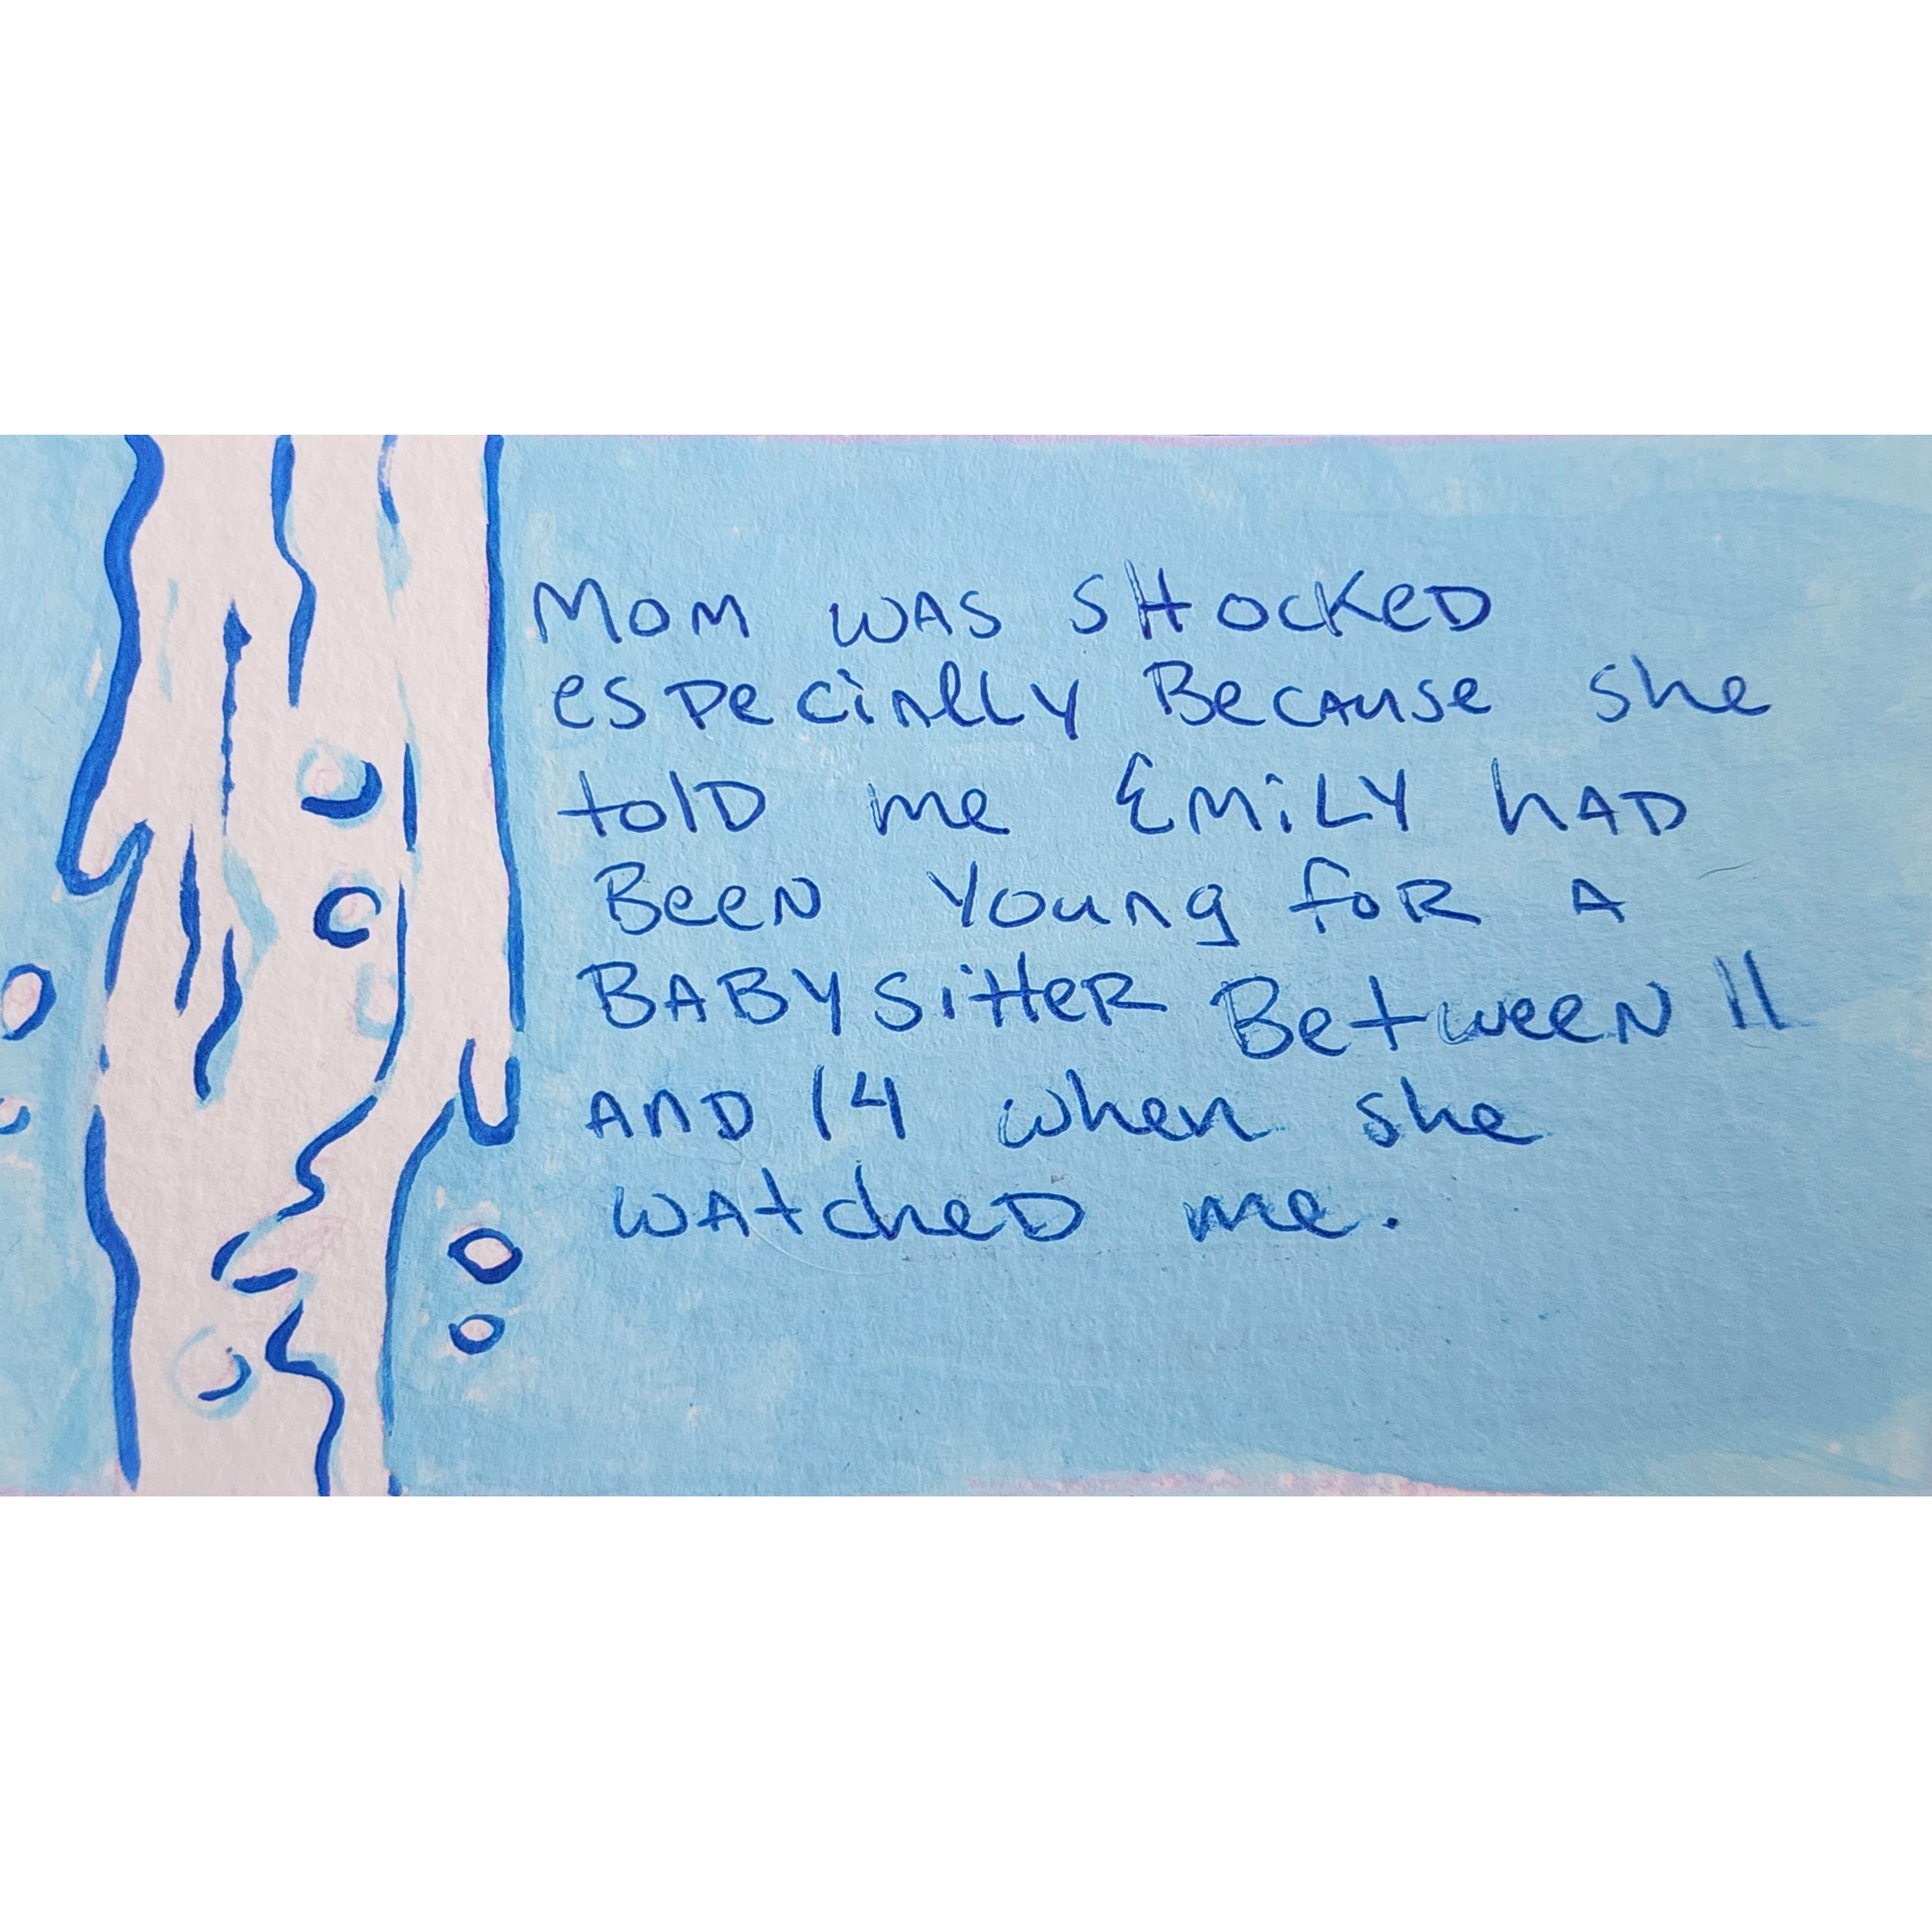 Mom was shocked
especially Because she
told me Emily had
Been Young for a
Babysitter Between 11
and 14 when she
watched me.